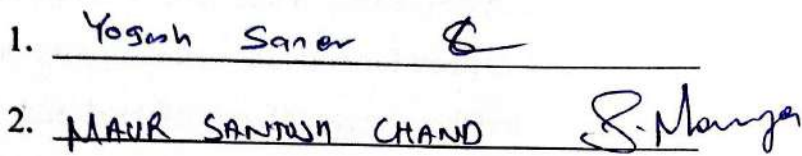 1. Yogesh Saner
2. MAUR SANTOSH CHAND S. Maurya